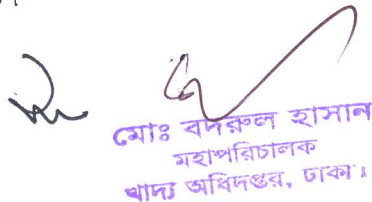 মোঃ বদরুল হাসান
মহাপরিচালক
খাদ্য অধিদপ্তর, ঢাকা।